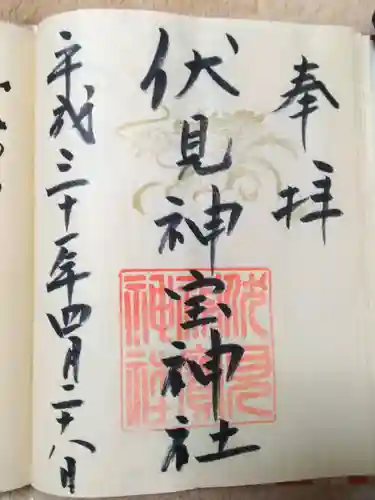 奉拝
伏見神宝神社
平成三十一年四月二十八日
伏見神寳神社